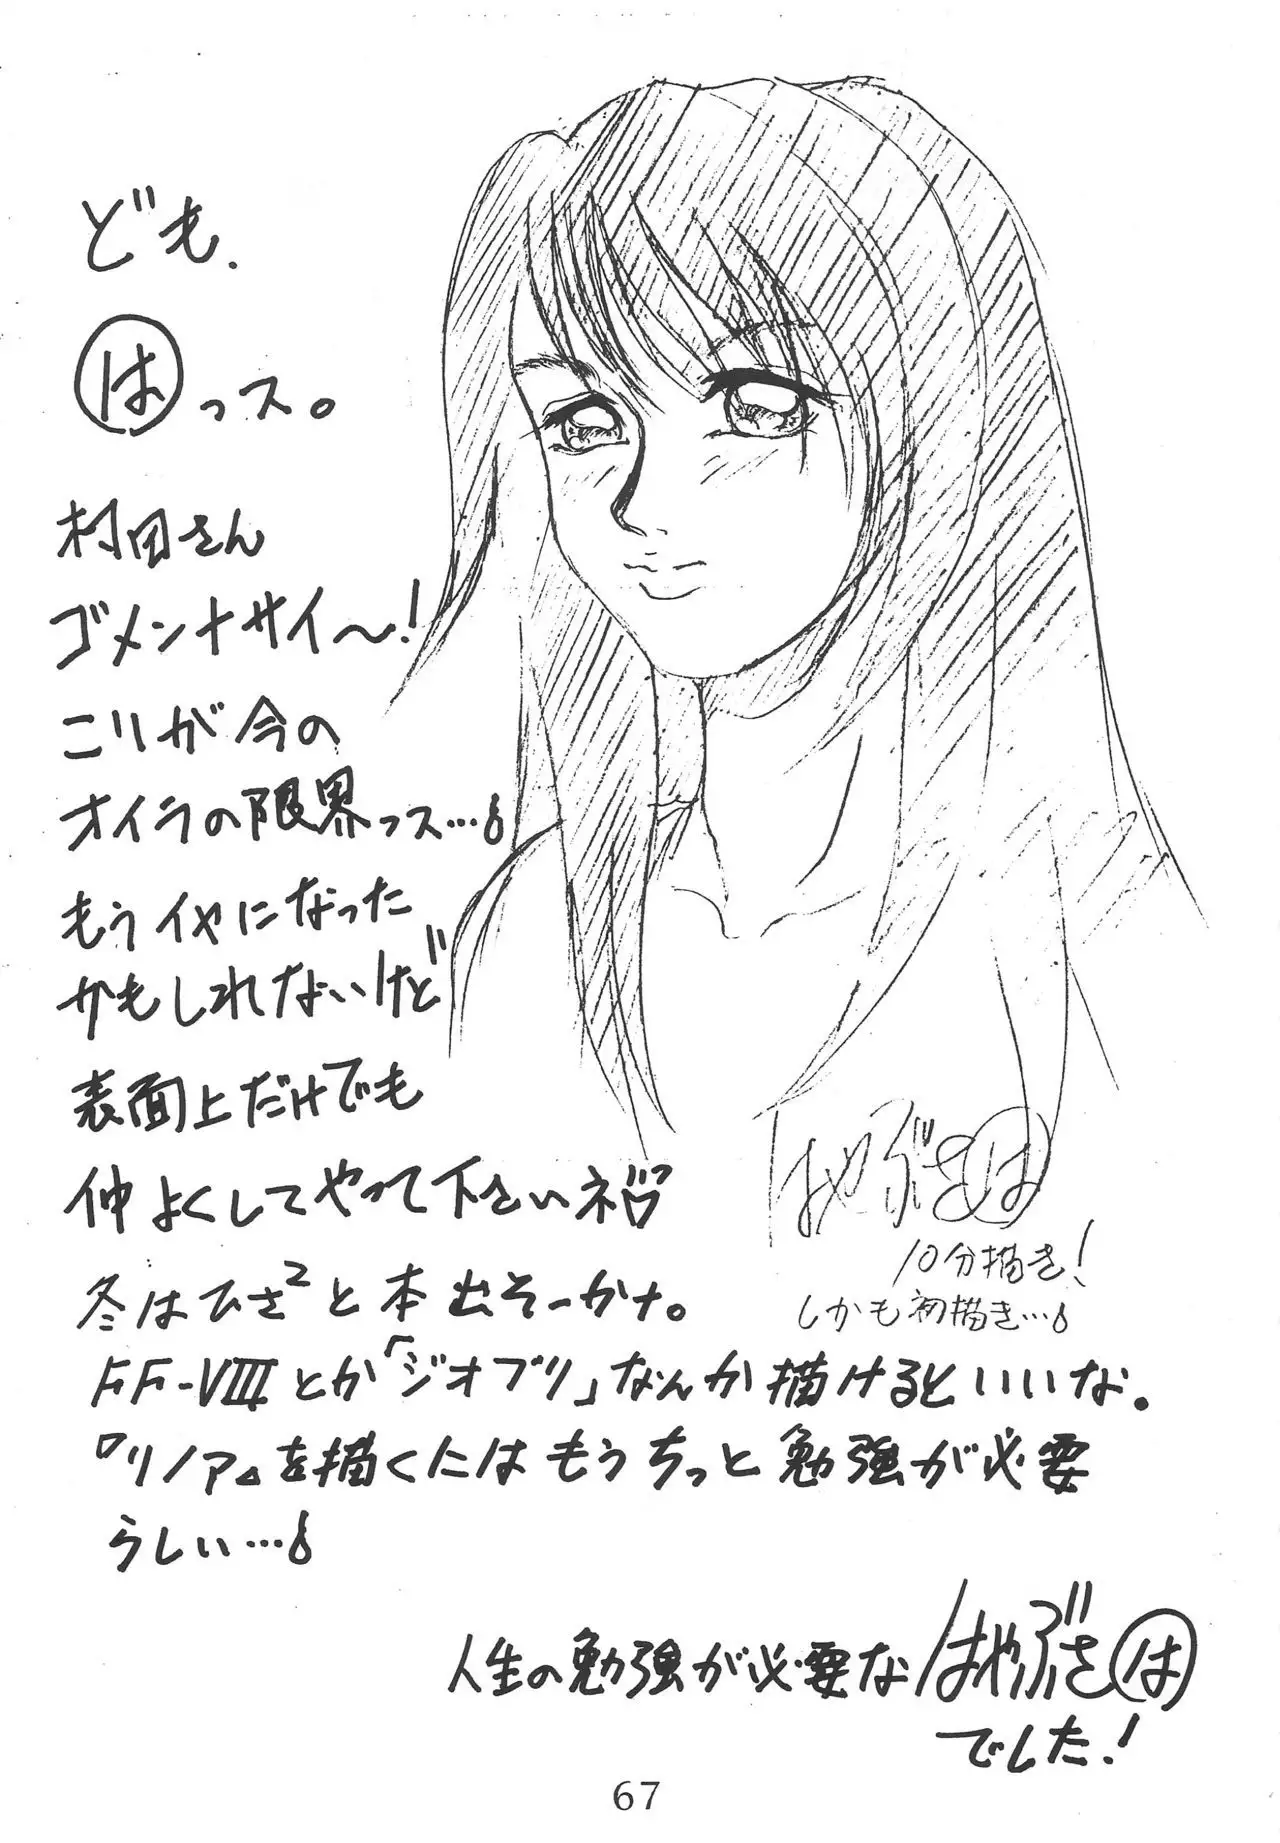 ども.
はっス。
村田さん
ゴメンナサイ～!
こりが今の
オイラの限界っス…
もうイヤになった
かもしれないけど
表面上だけでも
仲よくしてやって下さいネ
冬はひさ²と本出そーかな。
FF-VIIIとか「ジオブリ」なんか描けるといいな。
『リノア』を描くにはもうちっと勉強が必要
らしい…
はやぶさは
10分描き!
しかも初描き…
人生の勉強が必要なはやぶさは
でした!
67